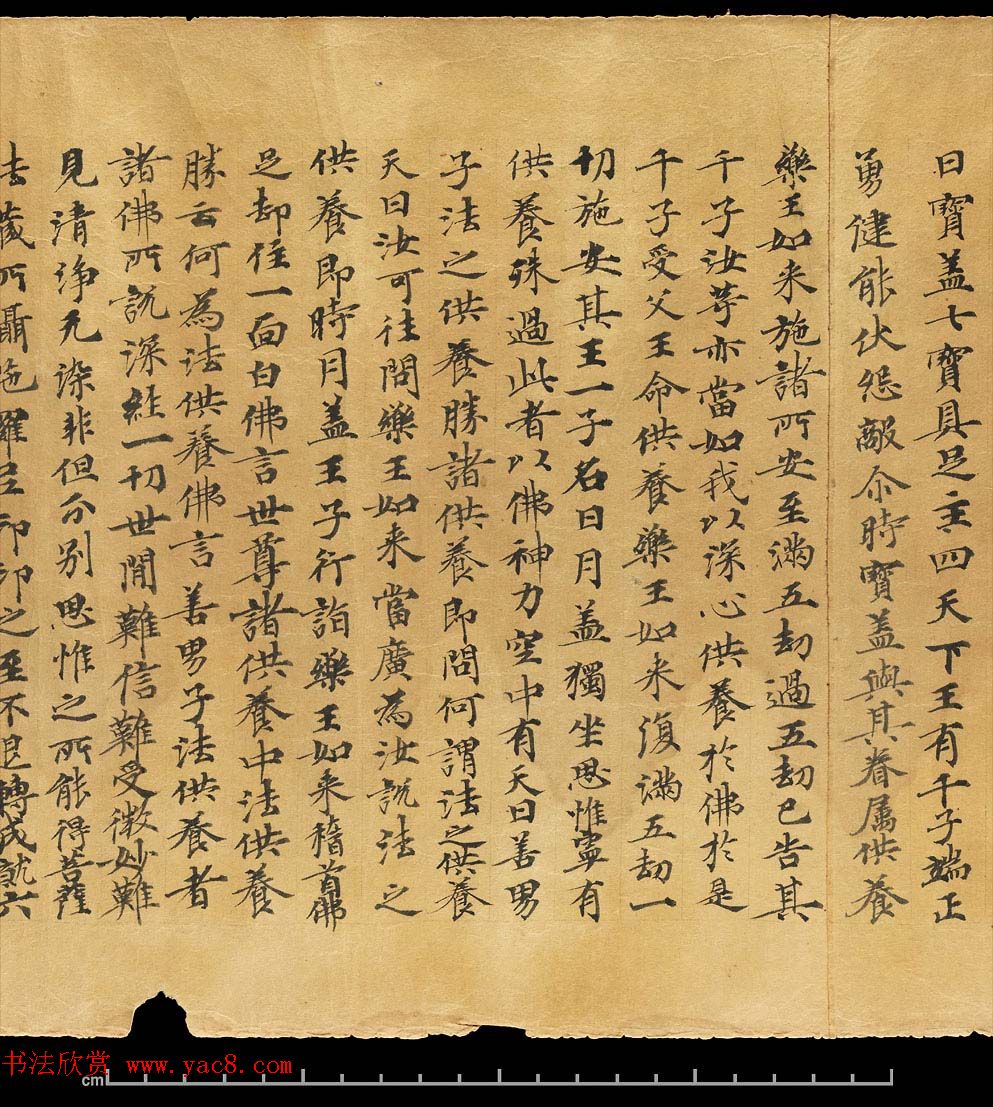 曰寶盖七寶具足主四天下王有千子端正
勇健能伏怨敵尒時寶盖與其眷属供養
藥王如来施諸所安至滿五劫過五劫已告其
千子汝等亦當如我以深心供養於佛於是
千子受父王命供養藥王如来復滿五劫一
切施安其王一子名曰月盖獨坐思惟寧有
供養殊過此者以佛神力空中有天曰善男
子法之供養勝諸供養即問何謂法之供養
天曰汝可往問藥王如来當廣為汝説法之
供養即時月盖王子行詣藥王如来稽首佛
足却住一面白佛言世尊諸供養中法供養
勝云何為法供養佛言善男子法供養者
諸佛所説深經一切世間難信難受微妙難
見清淨无染非但分别思惟之所能得菩薩
法藏所攝陁羅尼印印之至不退轉成就六
书法欣赏 www.yac8.com
cm